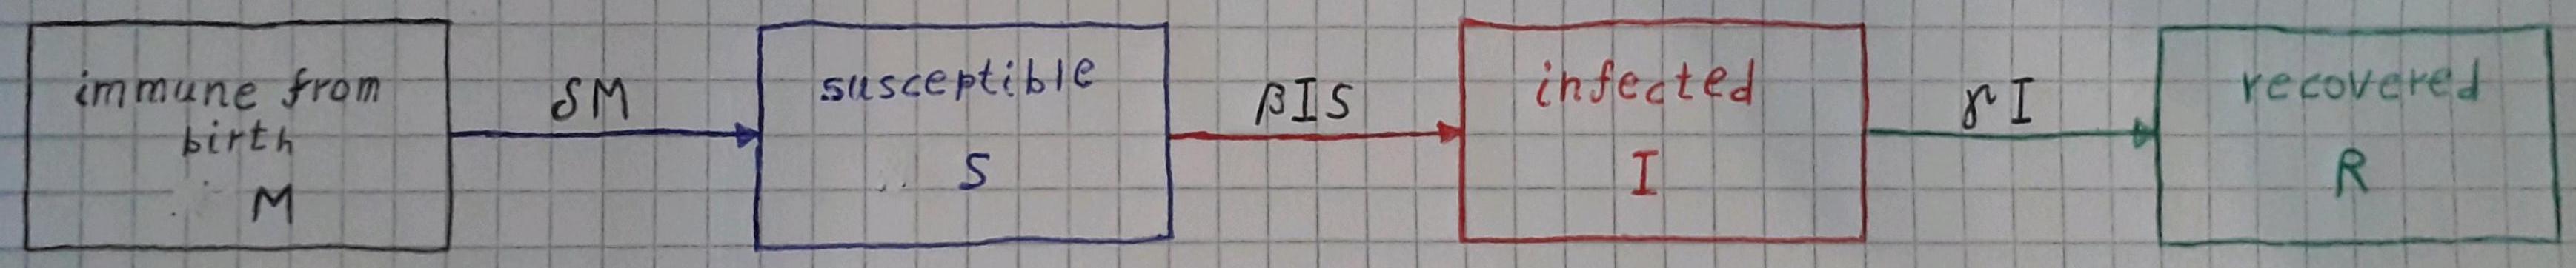 immune from
birth
M
δM
susceptible
S
βIS
infected
I
γI
recovered
R